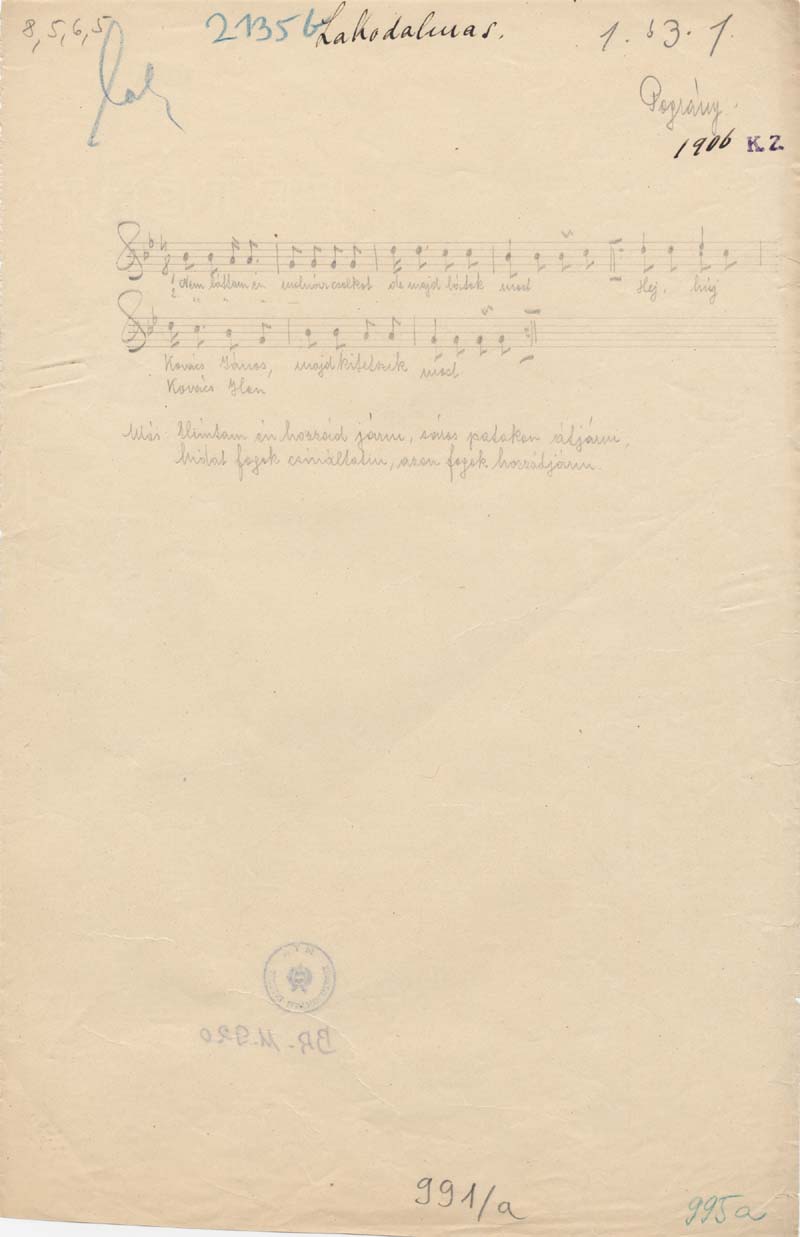 8, 5, 6, 5
21356
Lakodalmas.
1. b3. 1.
Pográny.
1906 K. Z.
1. Nem láttam én molnárcsókot de majd látok most Hej, huj
2. " " "
Kovács János, majd kitetszik most
Kovács Ilon
Más: én hozzád járni, sáros patakon átjárni,
hidat fogok csináltatni, azon fogok hozzád járni.
BR-M.920
991/a
995a